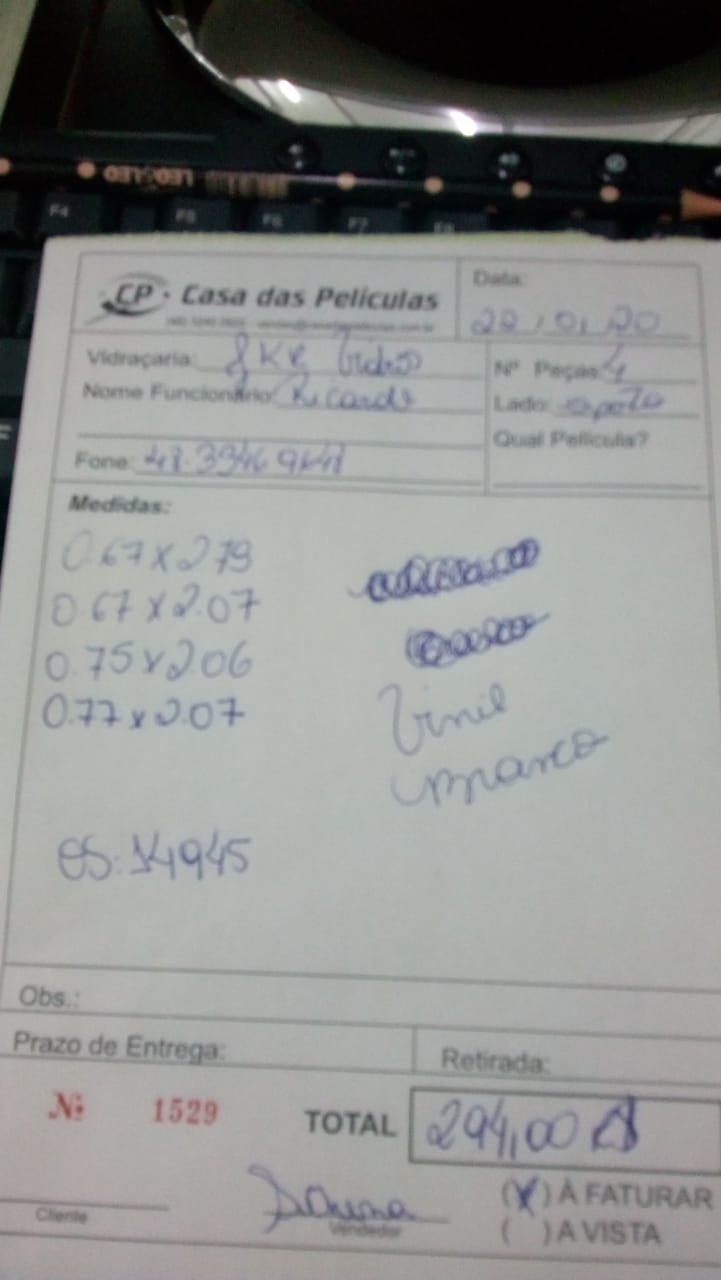 F4 F5 F6 F7
LEO&LEO
CP · Casa das Películas
Data:
22/01/20
Vidraçaria: JKR Vidros
Nome Funcionário: Ricardo
Nº Peças: 4
Lado: oposto
Qual Película?
Fone:
Medidas:
0.67 x 2.79
0.67 x 2.07
0.75 x 2.06
0.77 x 2.07
Vinil
Branco
OS: 14945
Obs.:
Prazo de Entrega:
Retirada:
Nº 1529
TOTAL 294,00
Cliente
Vendedor
(X) À FATURAR
( ) A VISTA